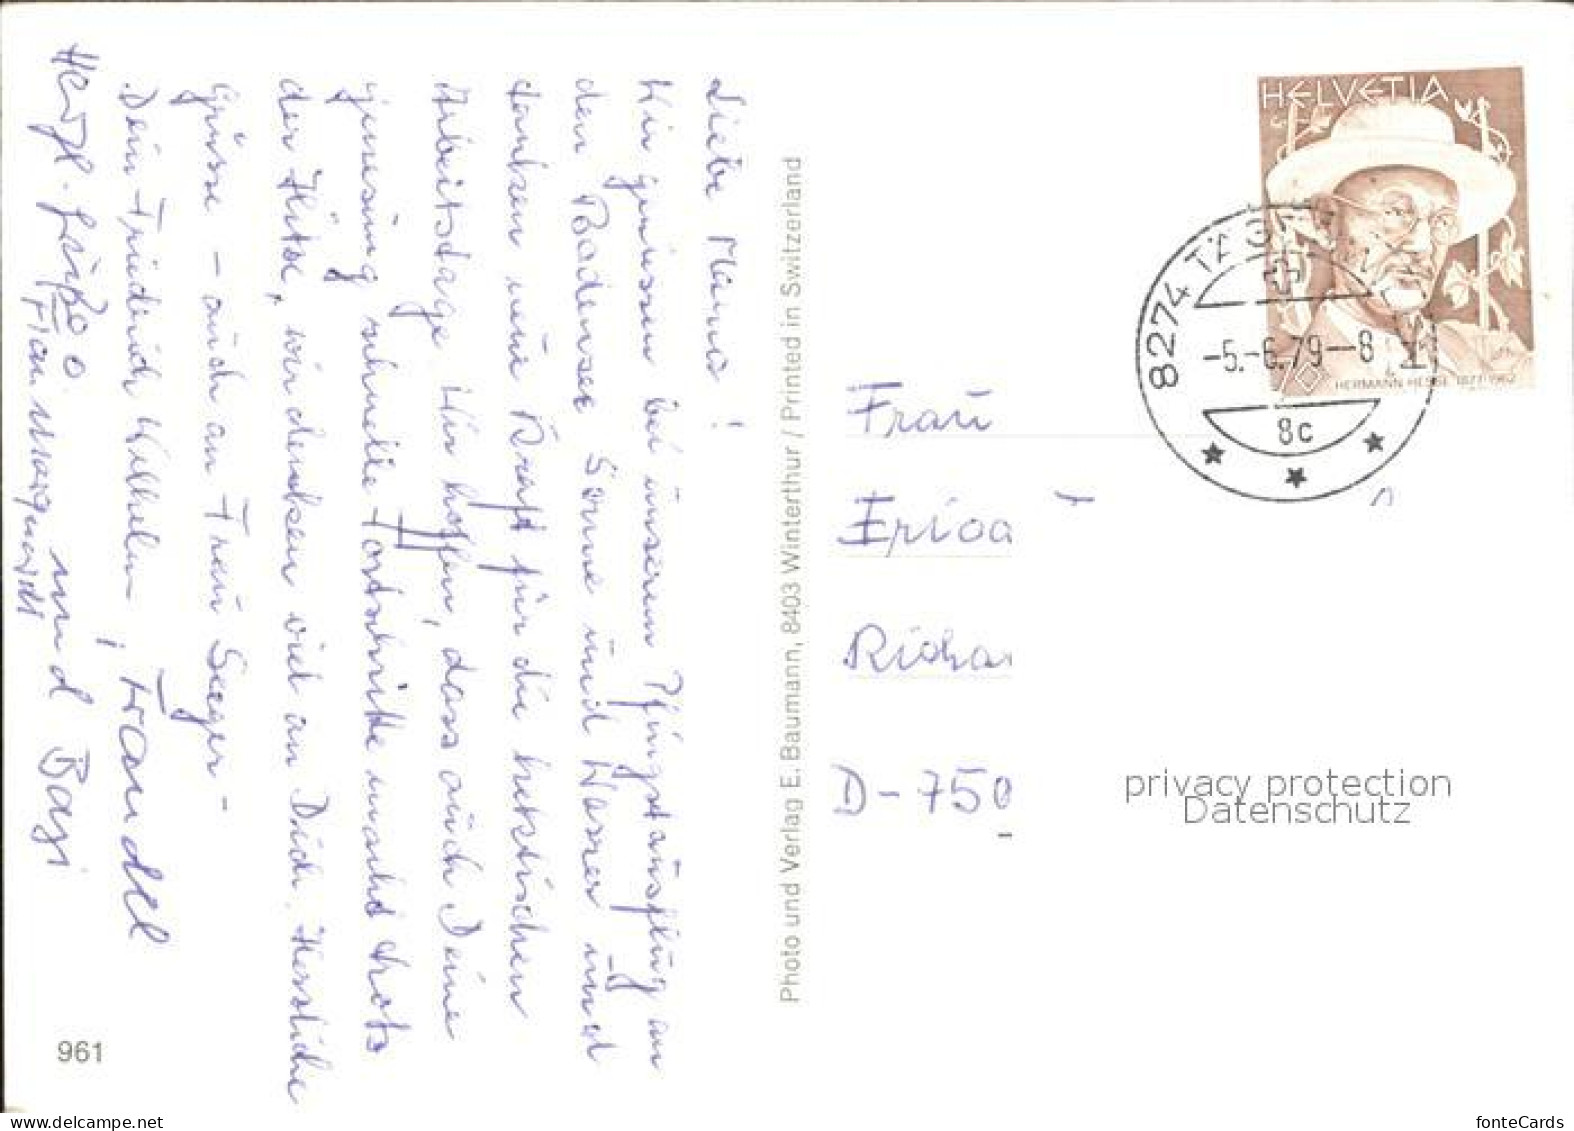 Liebe Mama!
Wir geniessen bei unserem Pfingstausflug an
den Bodensee Sonne und Wasser und
tanken neue Kraft für die hektischen
Arbeitstage. Wir hoffen, dass auch Deine
Genesung schnelle Fortschritte macht trotz
der Hitze, wir denken viel an Dich. Herzliche
Grüsse – auch an Frau Seeger –
Dein Friedrich Wilhelm! Traudel
Herzl. Grüße und
Frau Marquardt
961
Photo und Verlag E. Baumann, 8403 Winterthur / Printed in Switzerland
HELVETIA
70
HERMANN HESSE 1877-1962
8274 TÄG
-5.-6.79-8
8c
Frau
Erica
Richar
D-750
privacy protection
Datenschutz
www.delcampe.net
fonteCards